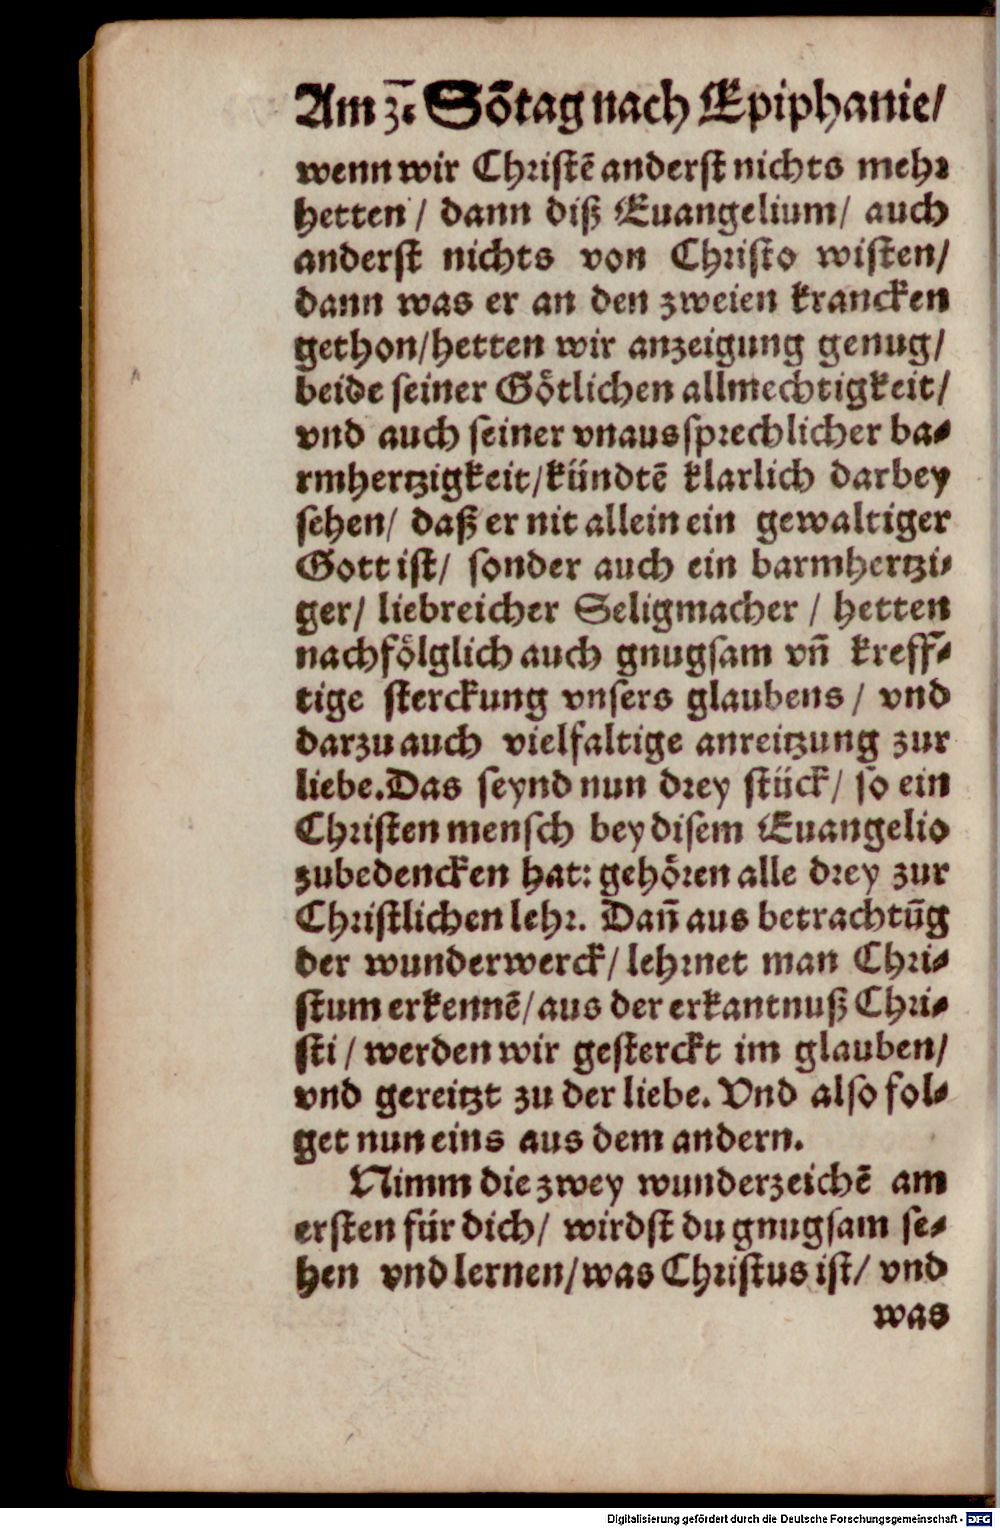 Am 3. Sōtag nach Epiphanie/
wenn wir Christē anderst nichts mehr
hetten / dann diß Euangelium/ auch
anderst nichts von Christo wisten/
dann was er an den zweien krancken
gethon/hetten wir anzeigung genug/
beide seiner Götlichen allmechtigkeit/
vnd auch seiner vnaussprechlicher ba⸗
rmhertzigkeit/kündtē klarlich darbey
sehen/ daß er nit allein ein gewaltiger
Gott ist/ sonder auch ein barmhertzi⸗
ger/ liebreicher Seligmacher / hetten
nachfölglich auch gnugsam vn̄ kreff⸗
tige sterckung vnsers glaubens / vnd
darzu auch vielfaltige anreitzung zur
liebe. Das seynd nun drey stück/ so ein
Christen mensch bey disem Euangelio
zubedencken hat: gehören alle drey zur
Christlichen lehr. Dan̄ aus betrachtūg
der wunderwerck/ lehrnet man Chri⸗
stum erkennē/aus der erkantnuß Chri⸗
sti / werden wir gesterckt im glauben/
vnd gereitzt zu der liebe. Vnd also fol⸗
get nun eins aus dem andern.
Nimm die zwey wunderzeichē am
ersten für dich/ wirdst du gnugsam se⸗
hen vnd lernen/was Christus ist/ vnd
was
Digitalisierung gefördert durch die Deutsche Forschungsgemeinschaft - DFG